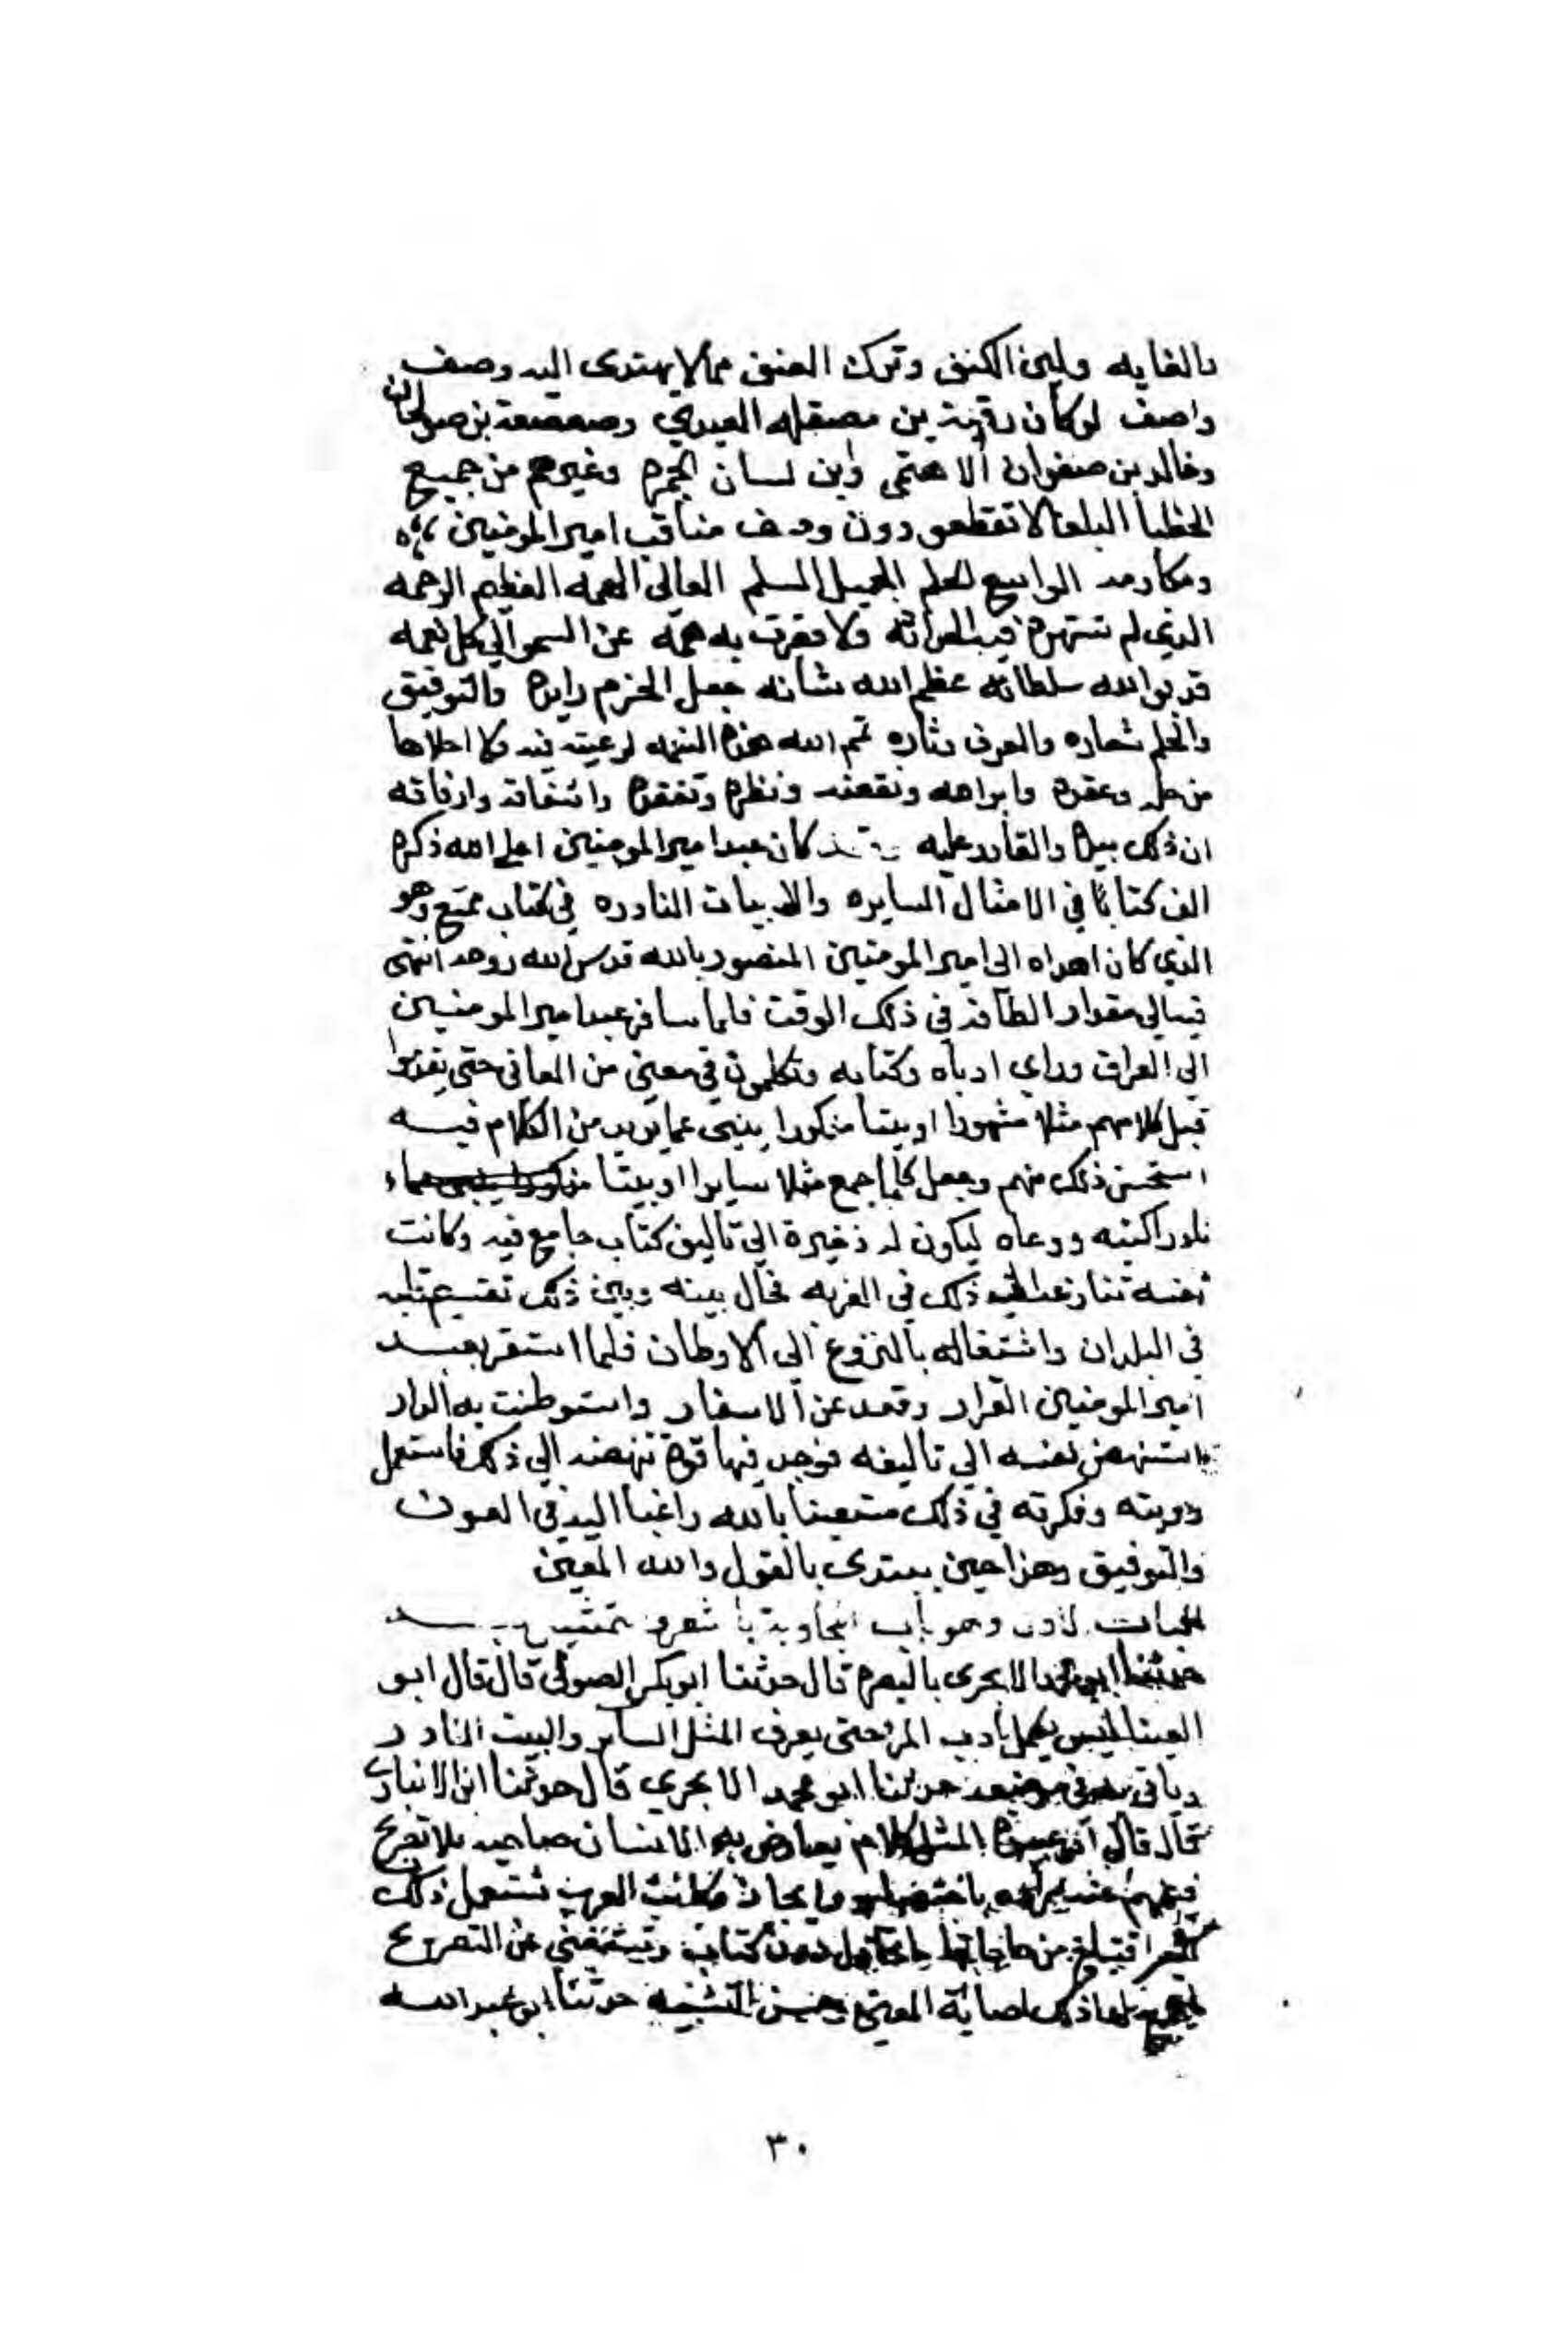 بالغايه ولين الكنف وترك العنف مما لا يهتدى اليه وصف
واصف لو كان رقبة بن مصقله العبدي وصعصعة بن صوحان
وخالد بن صفوان الاهتمي وابن لسان الحمره وغيرهم من جميع
الخطبا البلغا لانقطعو دون وصف مناقب امير المومنين
ومكارمه الواسع العلم الجميل السلم العالي الهمه العظيم الرحمه
الذي لم تشتهره فيه العزائه ولا قصرت به همه عن السمو الي كل نعمه
قد الله سلطانه عظم الله شانه جعل الحزم رايده والتوفيق
والحلم شعاره والعرف دثاره تمم الله هذه النعمه لرعيته فيه ولا اخلاها
من حله وعقده وابرامه ونقضه ونظره وتفقده واشفاقه وارفاقه
ان ذلك بيده والقادر عليه كان عبد امير المومنين اعلى الله ذكره
الف كتابا في الامثال السايره والابيات النادره في كتاب ممتع وهو
الذي كان اهداه الى امير المومنين المنصور بالله قدس الله روحه انتهى
فيه الي مقدار الطاقه في ذلك الوقت فلما سافر عبد امير المومنين
الي العراق وراي ادباه وكتابه وتكلمون في معنى من المعاني حتى يقدموا
قبل كلامهم مثلا مشهورا او بيتا مذكورا ينبي عما يريد من الكلام فيه
استحسن ذلك منهم وجعل كلما جمع مثلا سايرا او بيتا
نادرا كتبه ووعاه ليكون له ذخيرة الي تاليف كتاب جامع فيه وكانت
نفسه تنازعه الي ذلك في الغربه فحال بينه وبين ذلك تقسيم قلبه
في البلدان واشتغاله بالنزوع الي الاوطان فلما استقر بعبد
امير المومنين القرار وقعد عن الاسفار واستوطنت به الدار
استنهض نفسه الي تاليفه فوجد فيها قوة تنهضه الي ذلك فاستعمل
رويته وفكرته في ذلك مستعينا بالله راغبا اليه في العون
والتوفيق وهذا حين يبتدى بالقول والله المعين
وهو باب المجاوبة
حدثنا ابو محمد الابحري بالبصره قال حدثنا ابو بكر الصولي قال قال ابو
العينا ليس يكمل ادب المرء حتى يعرف المثل الساير والبيت النادر
وياتي به في موضعه حدثنا ابو محمد الابحري قال حدثنا ابن الانباري
قال قال ابو عبيدة المثل كلام يعارض به الانسان صاحبه بلا تصريح
فيفهم عنه مراده باختصار وايجاز وكانت العرب تستعمل ذلك
من حاجاتها عن التصريح
لها ذلك اصابة المعنى وحسن التشبيه حدثنا ابو عبد الله
٣٠